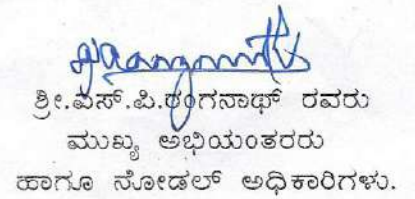 ಶ್ರೀ.ಎಸ್.ಪಿ.ರಂಗನಾಥ್ ರವರು
ಮುಖ್ಯ ಅಭಿಯಂತರರು
ಹಾಗೂ ನೋಡಲ್ ಅಧಿಕಾರಿಗಳು.